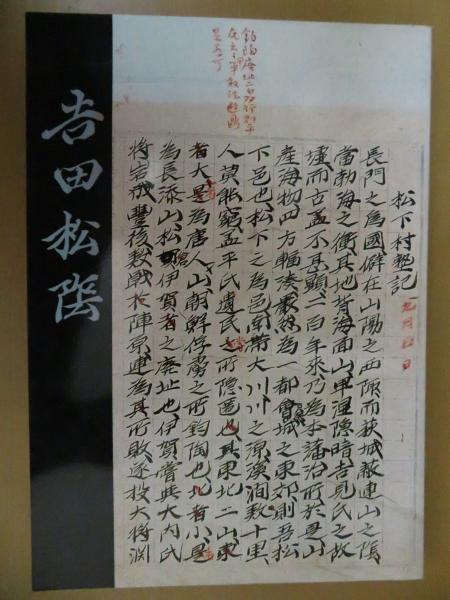 松下村塾記
長門之為國僻在山陽之西陬而萩城蔽連山之陰
當渤海之衝其地背海面山卑湿隠暗吉見氏之故
墟而古盖不甚顯二百年来乃為本藩治所於是山
產海物四方輻湊嚴然為一都會城之東郊則吾松
下邑也松下之為邑南帶大川川之源溪澗数十里
人莫能窮盖平氏遺民之所隠匿也其東北二山東
者大是為唐人山朝鮮俘虜之所鈞陶也北者小是
為長添山松倉伊賀者之廢址也伊賀嘗與大内氏
將岩成豐後数戰於陣原連為其所敗遂投大将淵
吉田松陰